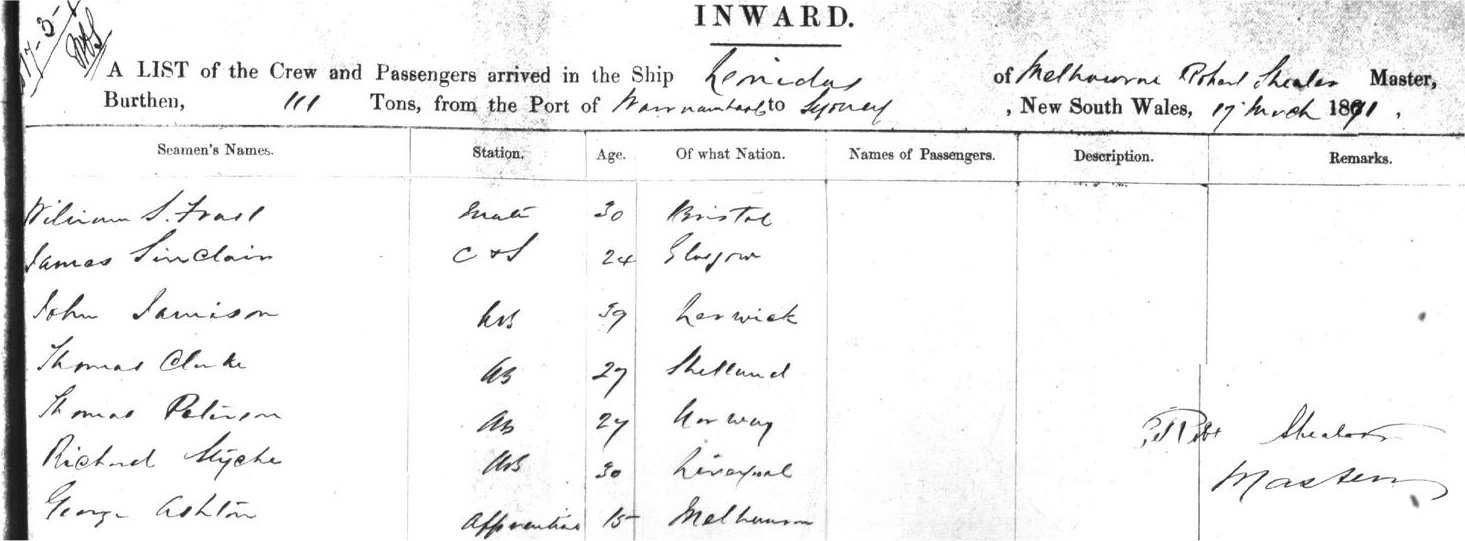 INWARD.
A LIST of the Crew and Passengers arrived in the Ship of Melbourne Robert Master,
Burthen, 111 Tons, from the Port of Warrnambool to Sydney , New South Wales, 17 March 1871.
Seamen's Names. Station. Age. Of what Nation. Names of Passengers. Description. Remarks.
William S. Frost Mate 30 Bristol
James Sinclair C & S 24 Glasgow
John Jamison AB 39 Lerwick
Thomas Clarke AB 27 Shetland
Thomas Peterson AB 27 Norway
Richard AB 30 Liverpool
George Ashton Apprentice 15 Melbourne
Master